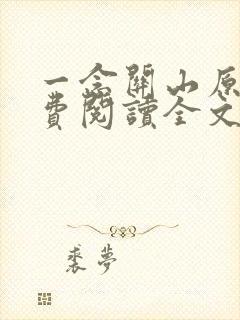 一念關山原
費閱讀全文
裘夢